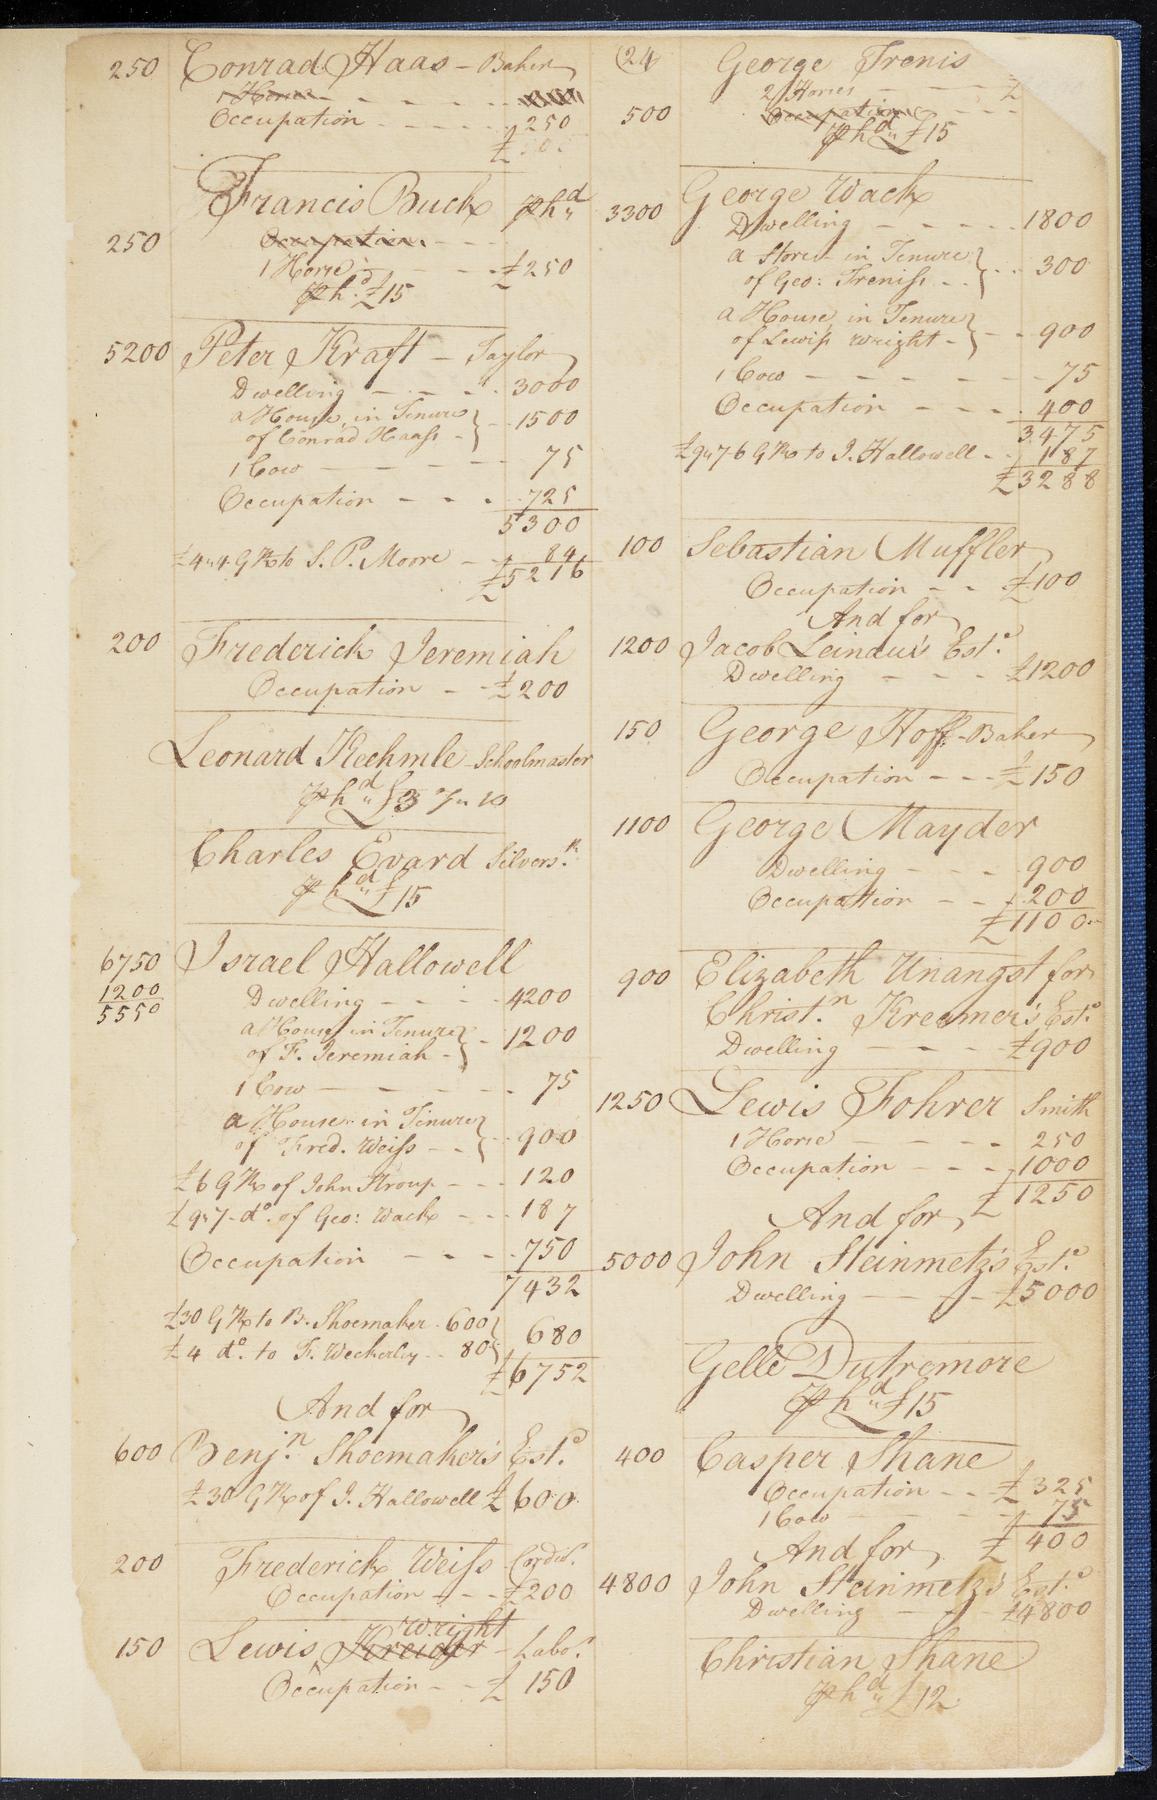 250 Conrad Haas - Baker
1 Horse
Occupation 250
£
Francis Buck ₱hd
250 Occupation
1 Horse £250
₱hd. £15
5200 Peter Kraft - Taylor
Dwelling 3000
a House, in Tenure
of Conrad Haass 1500
1 Cow 75
Occupation 725
5300
£4"4 G Rt to S. P. Moore 84
£5216
200 Frederick Jeremiah
Occupation £200
Leonard Kechmle Schoolmaster
₱hd" £3 7" 10
Charles Evard Silvers.
₱hd" £15
6750 Israel Hallowell
1200 Dwelling 4200
5550
a House, in Tenure
of F. Jeremiah 1200
1 Cow 75
a House in Tenure
of Fred. Weiss 900
£6 G Rt of John Stroup 120
£9"7 do. of Geo: Wack 187
Occupation 750
7432
£30 G Rt to B. Shoemaker 600
£4 do. to F. Weckerley 80 680
£6752
And for
600 Benjn. Shoemaker's Este.
£30 G Rt of I. Hallowell £600
200 Frederick Weiss Cordw.
Occupation £200
wright
150 Lewis Kreider - Labor.
Occupation £150
(24) George Trenis
2 Horses £
500 Occupation
₱hd" £15
3300 George Wack
Dwelling 1800
a Store - in Tenure
of Geo: Treniss 300
a House, in Tenure
of Lewis Wright 900
1 Cow 75
Occupation 400
3475
£9"7"6 G Rt to I. Hallowell 187
£3288
100 Sebastian Muffler
Occupation £100
And for
1200 Jacob Leindui's Este.
Dwelling £1200
150 George Hoff - Baker
Occupation £150
1100 George Mayder
Dwelling 900
Occupation 200
£1100
900 Elizabeth Unangst for
Christn. Kreemer's Este.
Dwelling £900
1250 Lewis Fohrer Smith
1 Horse 250
Occupation 1000
£1250
And for
5000 John Steinmetz's Este.
Dwelling £5000
Gelle Dutremore
₱hd" £15
400 Casper Shane
Occupation £325
1 Cow 75
£400
And for
4800 John Steinmetz's Este.
Dwelling £4800
Christian Shane
₱hd" £12